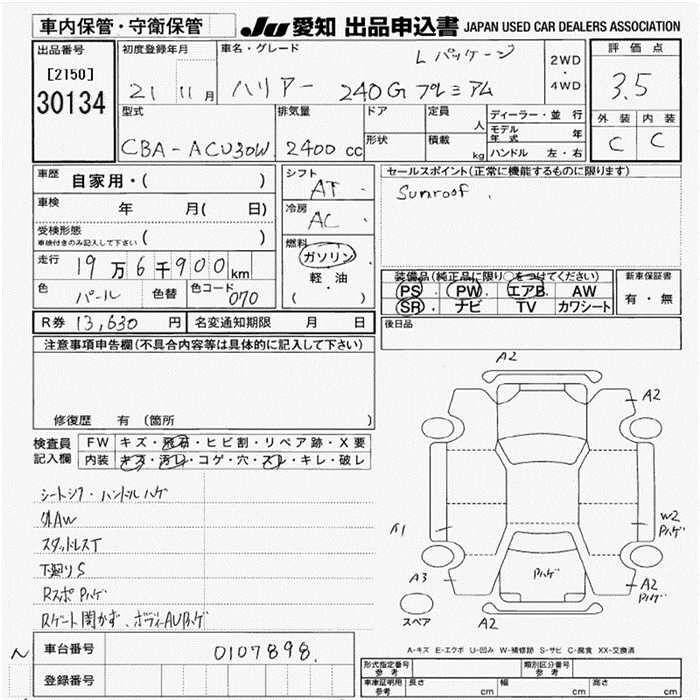 車内保管・守衛保管 JU 愛知 出品申込書 JAPAN USED CAR DEALERS ASSOCIATION
出品番号
[2150]
30134
初度登録年月
21 11月
車名・グレード
Lパッケージ
ハリアー 240G プレミアム
2WD
・
4WD
評価点
3.5
外装 内装
C C
型式
CBA-ACU30W
排気量
2400 cc
ドア
形状
定員
人
積載
kg
ディーラー・並行
モデル年式 年
ハンドル 左・右
車歴 自家用・( )
車検 年 月( 日)
受検形態
車検付きのみ記入して下さい ( )
走行 19万6千900km
色 パール 色替 色コード 070
シフト AT
冷房 AC
燃料
ガソリン
軽・油
( )
セールスポイント(正常に機能するものに限ります)
Sunroof
装備品(純正品に限り○をつけてください)
PS PW エアB AW
SR ナビ TV カワシート
新車保証書
有・無
R券 13,630 円 名変通知期限 月 日
後日品
注意事項申告欄(不具合内容等は具体的に記入して下さい)
修復歴 有 (箇所 )
検査員記入欄
FW キズ・飛石・ヒビ割・リペア跡・X要
内装 キズ・汚レ・コゲ・穴・スレ・キレ・破レ
シートシワ・ハンドルハゲ
外AW
スタッドレスT
下廻りS
RスポPハゲ
Rゲート開かず、ボディーAUPハゲ
A2
A2
A1
W2
Pハゲ
A3
Pハゲ
A2
Pハゲ
スペア
A2
A-キズ E-エクボ U-凹み W-補修跡 S-サビ C-腐食 XX-交換済
車台番号 0107898
登録番号
形式指定番号
参考
類別区分番号
参考
車庫証明用
参考
長さ cm 幅 cm 高さ cm